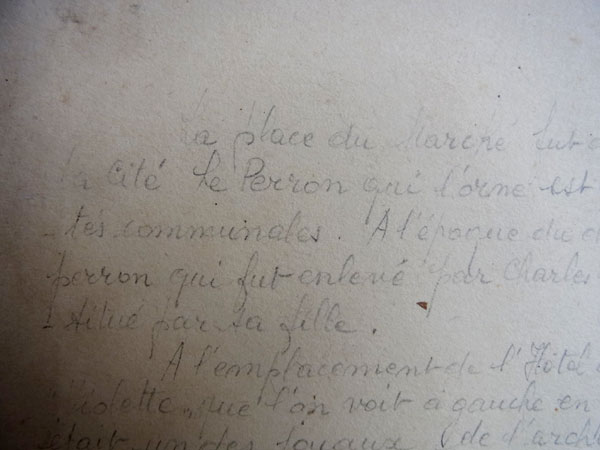 La place du Marché fut
la Cité Le Perron qui l'orne est
- tés communales. A l'époque du
perron qui fut enlevé par Charles
- stitué par sa fille.
A l'emplacement de l'Hôtel
Violette, que l'on voit à gauche en
était un des de l'arch